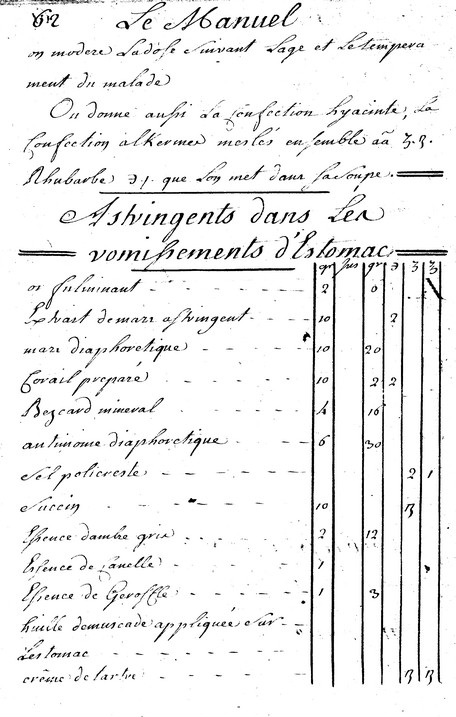 62 Le Manuel
on modere La dose Suivant Lage et Le tempera
ment du malade
On donne aussi La Confection hyacinte, La
Confection alkermes meslés ensemble aã ʒ.ʒ.
Rhubarbe ℈j. que Lon met dans sa Soupe.
Astringents dans Les
vomissements d'Estomac
gr Jus gr ℈ ʒ ʒ
or fulminant 2 6
Extrait de mars astringent 10 2
mars diaphoretique 10 20
Corail preparé 10 2 2
Bezoard mineral 4 16
antimoine diaphoretique 6 30
Sel policreste 2 1
Succin 10 ʒ
Essence dambre gris 2 12
Essence de Canelle 1
Essence de Geroffle 1 3
huille de muscade appliquée Sur
Lestomac
crême de tartre ʒ ʒ